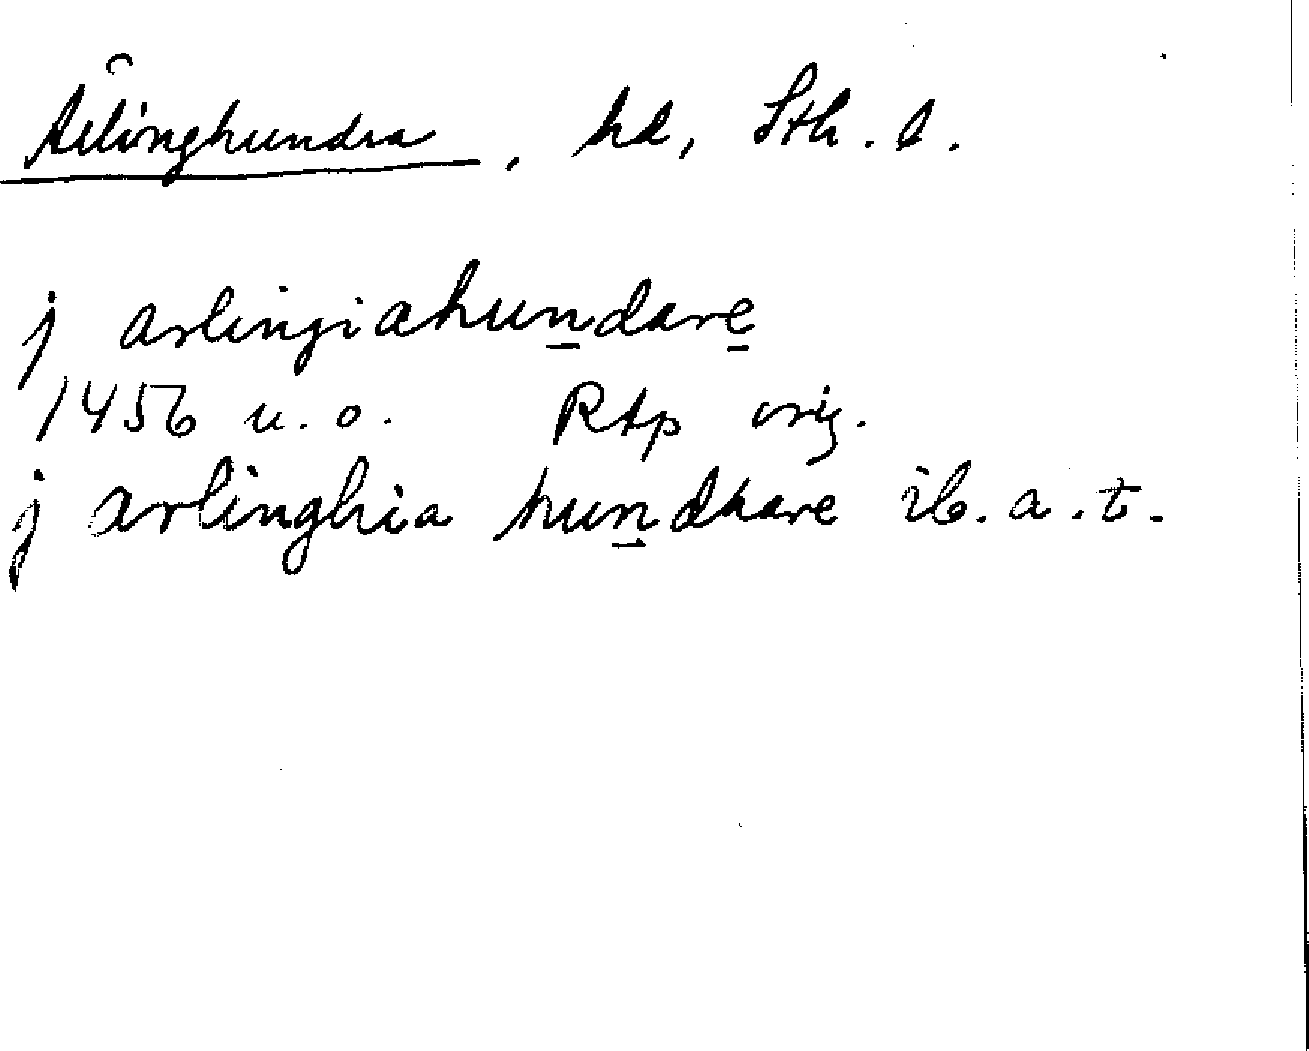 Ärlinghundra, hd, Sth. l.
j arlingiahundare
1456 u.o. Rtp orig.
j arlinghia hundhare ib. a.t.